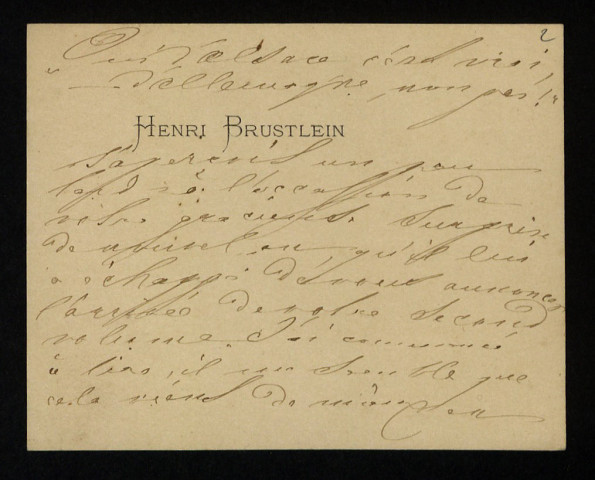 2
"Oui d'Alsace c'est vrai,
d'Allemagne, non pas!"
HENRI BRUSTLEIN
s'aperçoit un peu
tard à l'occasion de
votre gracieuse surprise
de nouvel an qu'il lui
a échappé de vous annoncer
l'arrivée de votre second
volume. J'ai commencé
à lire, il me semble que
cela vient de mieux en